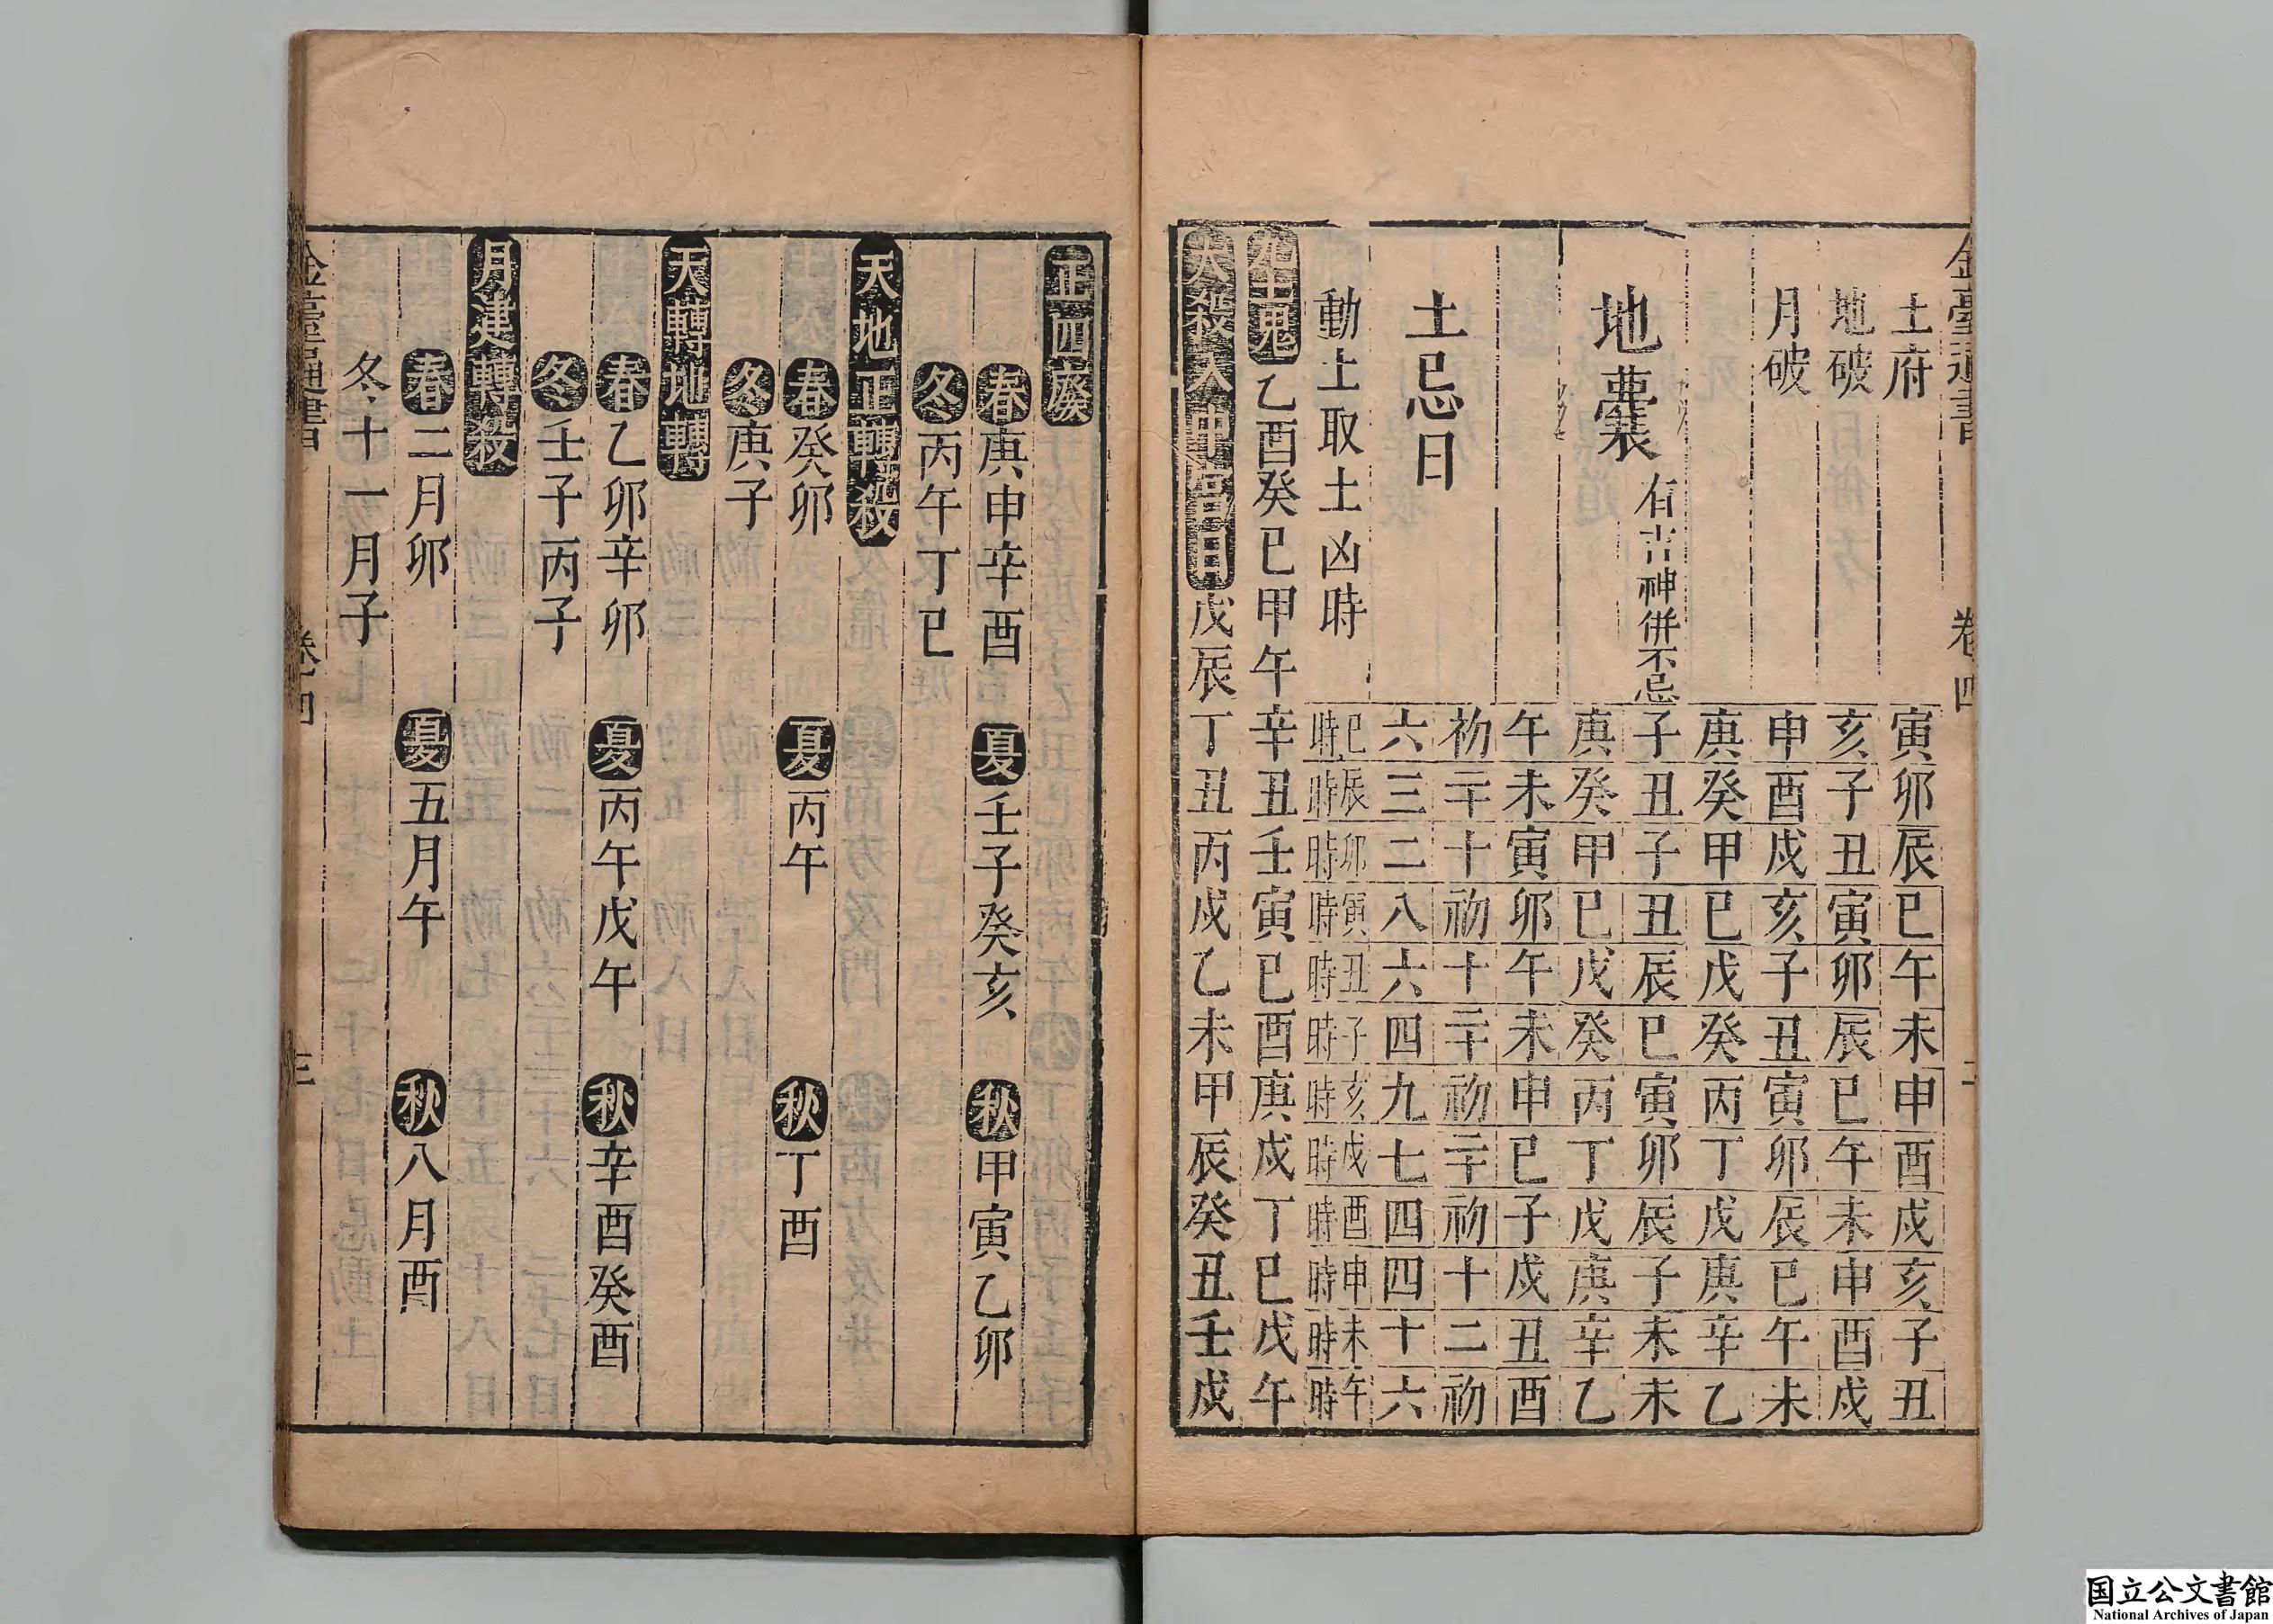 金臺通書 卷四 二
土府 寅卯辰巳午未申酉戌亥子丑
地破 亥子丑寅卯辰巳午未申酉戌
月破 申酉戌亥子丑寅卯辰巳午未
庚癸甲巳戊癸丙丁戊庚辛乙
地囊 有吉神併不忌 子丑子丑辰巳寅卯辰子未未
庚癸甲巳戊癸丙丁戊庚辛乙
午未寅卯午未申巳子戌丑酉
初二十十初十二十初二十初十二初
土忌日 六三二八六四九七四四十六
動土取土凶時 巳時辰時卯時寅時丑時子時亥時戌時酉時申時未時午時
九土鬼 乙酉癸巳甲午辛丑壬寅巳酉庚戌丁巳戊午
大殺入中宮日 戊辰丁丑丙戌乙未甲辰癸丑壬戌
正四廢
春庚申辛酉 夏壬子癸亥 秋甲寅乙卯
冬丙午丁巳
天地正轉殺
春癸卯 夏丙午 秋丁酉
冬庚子
天轉地轉
春乙卯辛卯 夏丙午戊午 秋辛酉癸酉
冬壬子丙子
月建轉殺
春二月卯 夏五月午 秋八月酉
冬十一月子
金臺通書 卷四 三
国立公文書館
National Archives of Japan